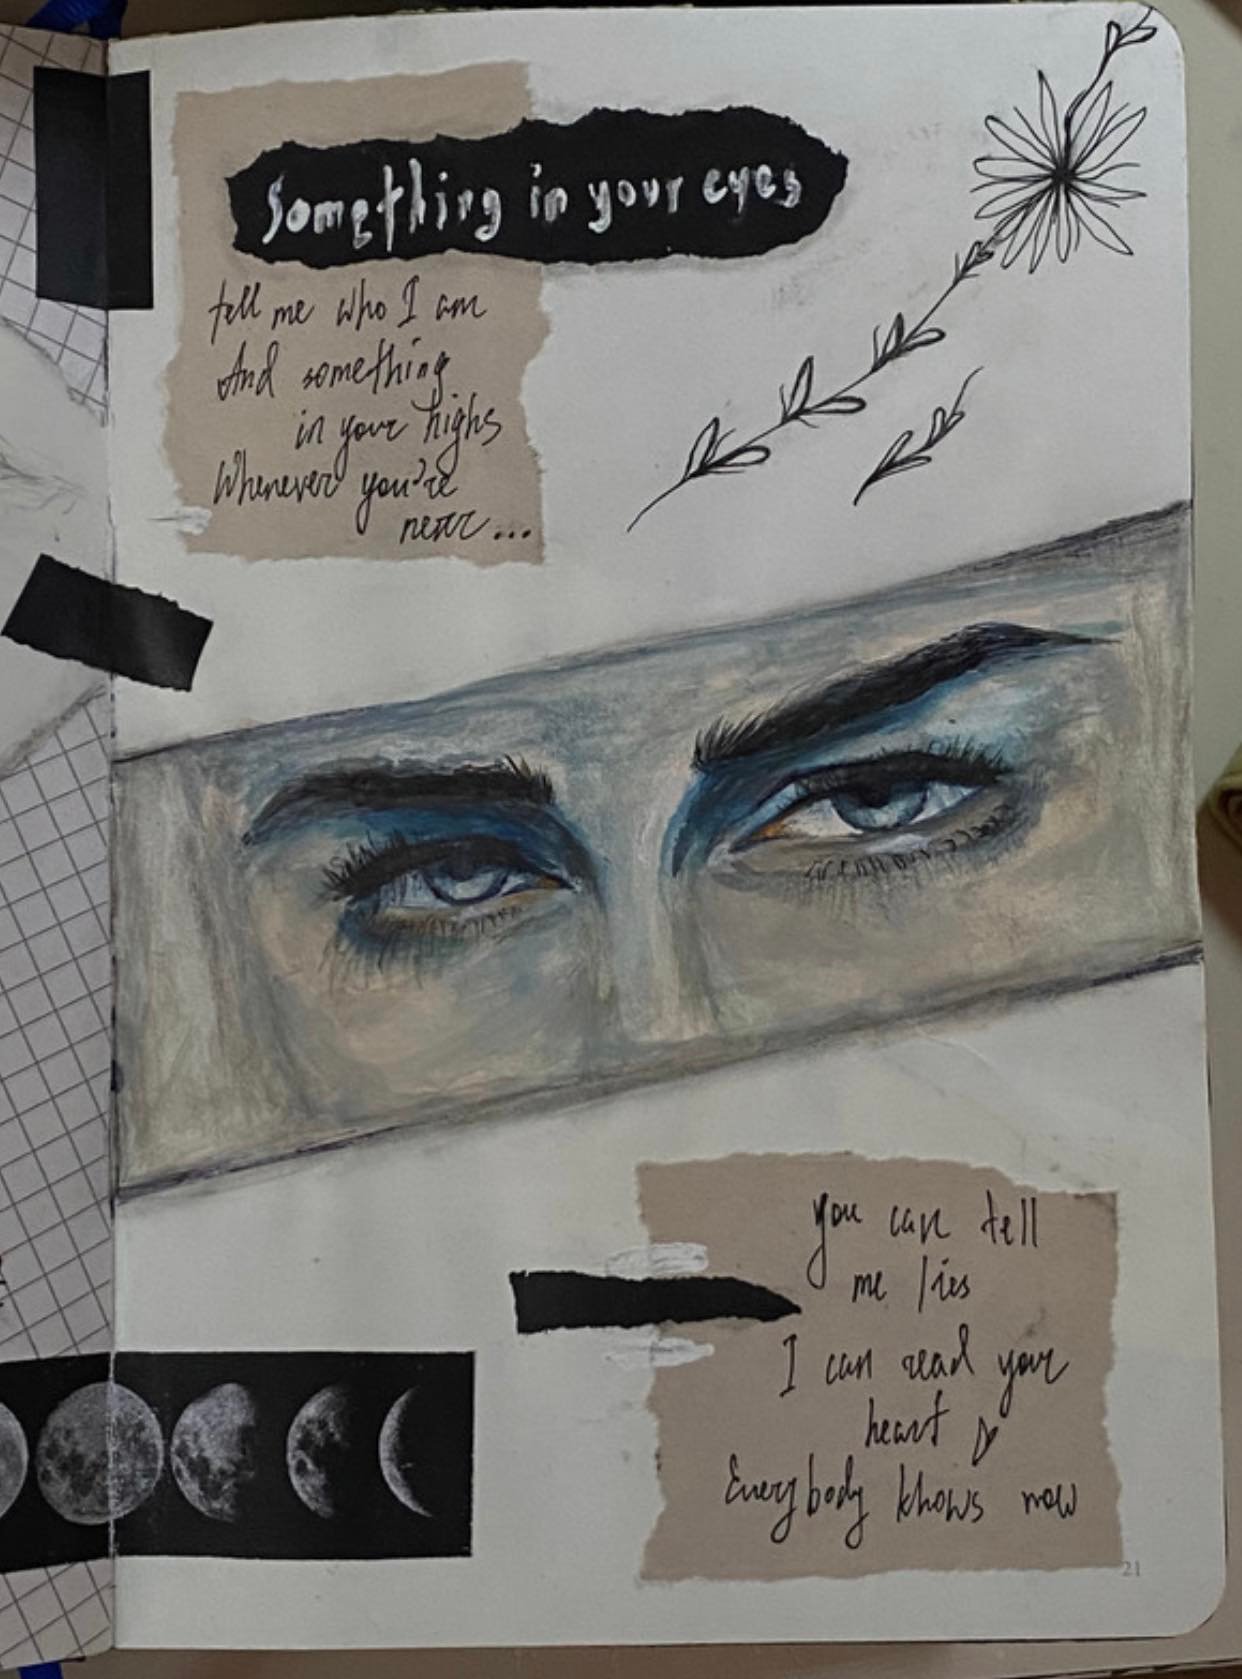 Something in your eyes
tell me who I am
And something
in your highs
Whenever you're
near...
you can tell
me lies
I can read your
heart
Everybody knows now
21